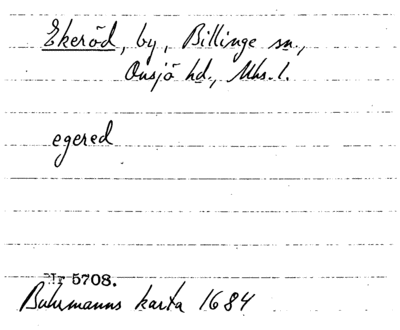 Ekeröd, by, Billinge sn.,
Onsjö hd., Mhs. l.
egered
Nr 5708.
Buhrmanns karta 1684